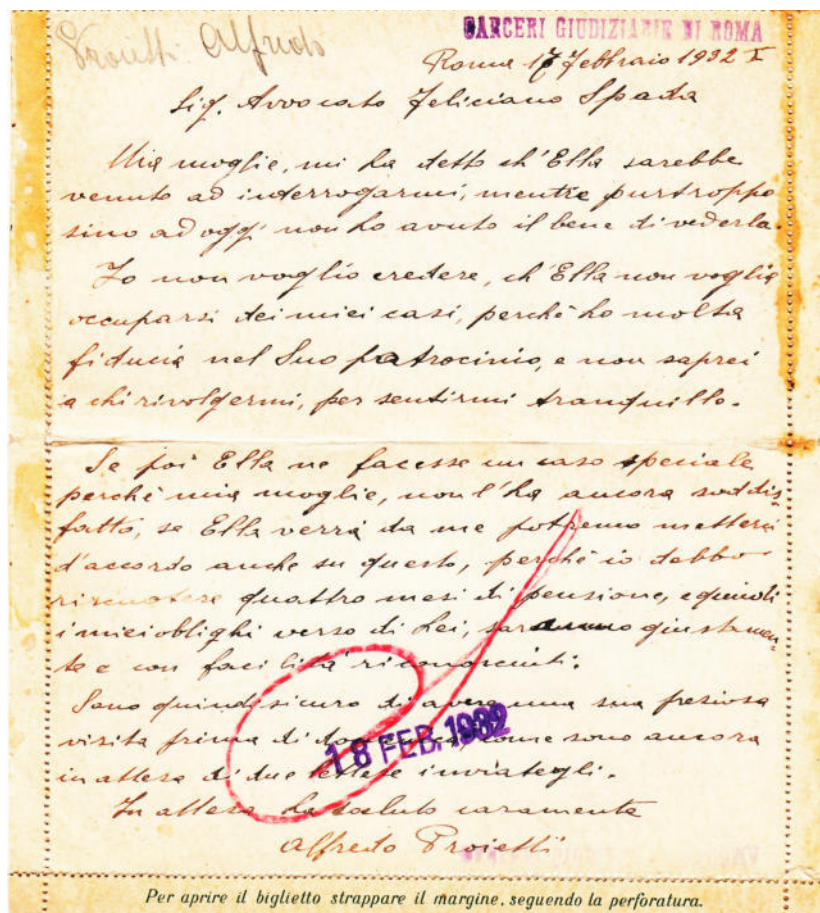 Proietti Alfredo
CARCERI GIUDIZIARIE DI ROMA
Roma 17 febbraio 1932 X
Sig. Avvocato Feliciano Spada
Mia moglie, mi ha detto ch'Ella sarebbe
venuto ad interrogarmi, mentre purtroppo
sino ad oggi non ho avuto il bene di vederla.
Io non voglio credere, ch'Ella non voglia
occuparsi dei miei casi, perchè ho molta
fiducia nel Suo patrocinio, e non saprei
a chi rivolgermi, per sentirmi tranquillo.
Se poi Ella ne facesse un caso speciale
perchè mia moglie, non l'ha ancora soddis-
fatto, se Ella verrà da me potremo metterci
d'accordo anche su questo, perchè io debbo
riscuotere quattro mesi di pensione, e quindi
i miei oblighi verso di Lei, saranno giustamen-
te e con facilità riconosciuti.
Sono quindi sicuro di avere una sua preziosa
visita prima di domenica come sono ancora
in attesa di due lettere inviategli.
18 FEB. 1932
In attesa La saluto caramente
Alfredo Proietti
Per aprire il biglietto strappare il margine, seguendo la perforatura.